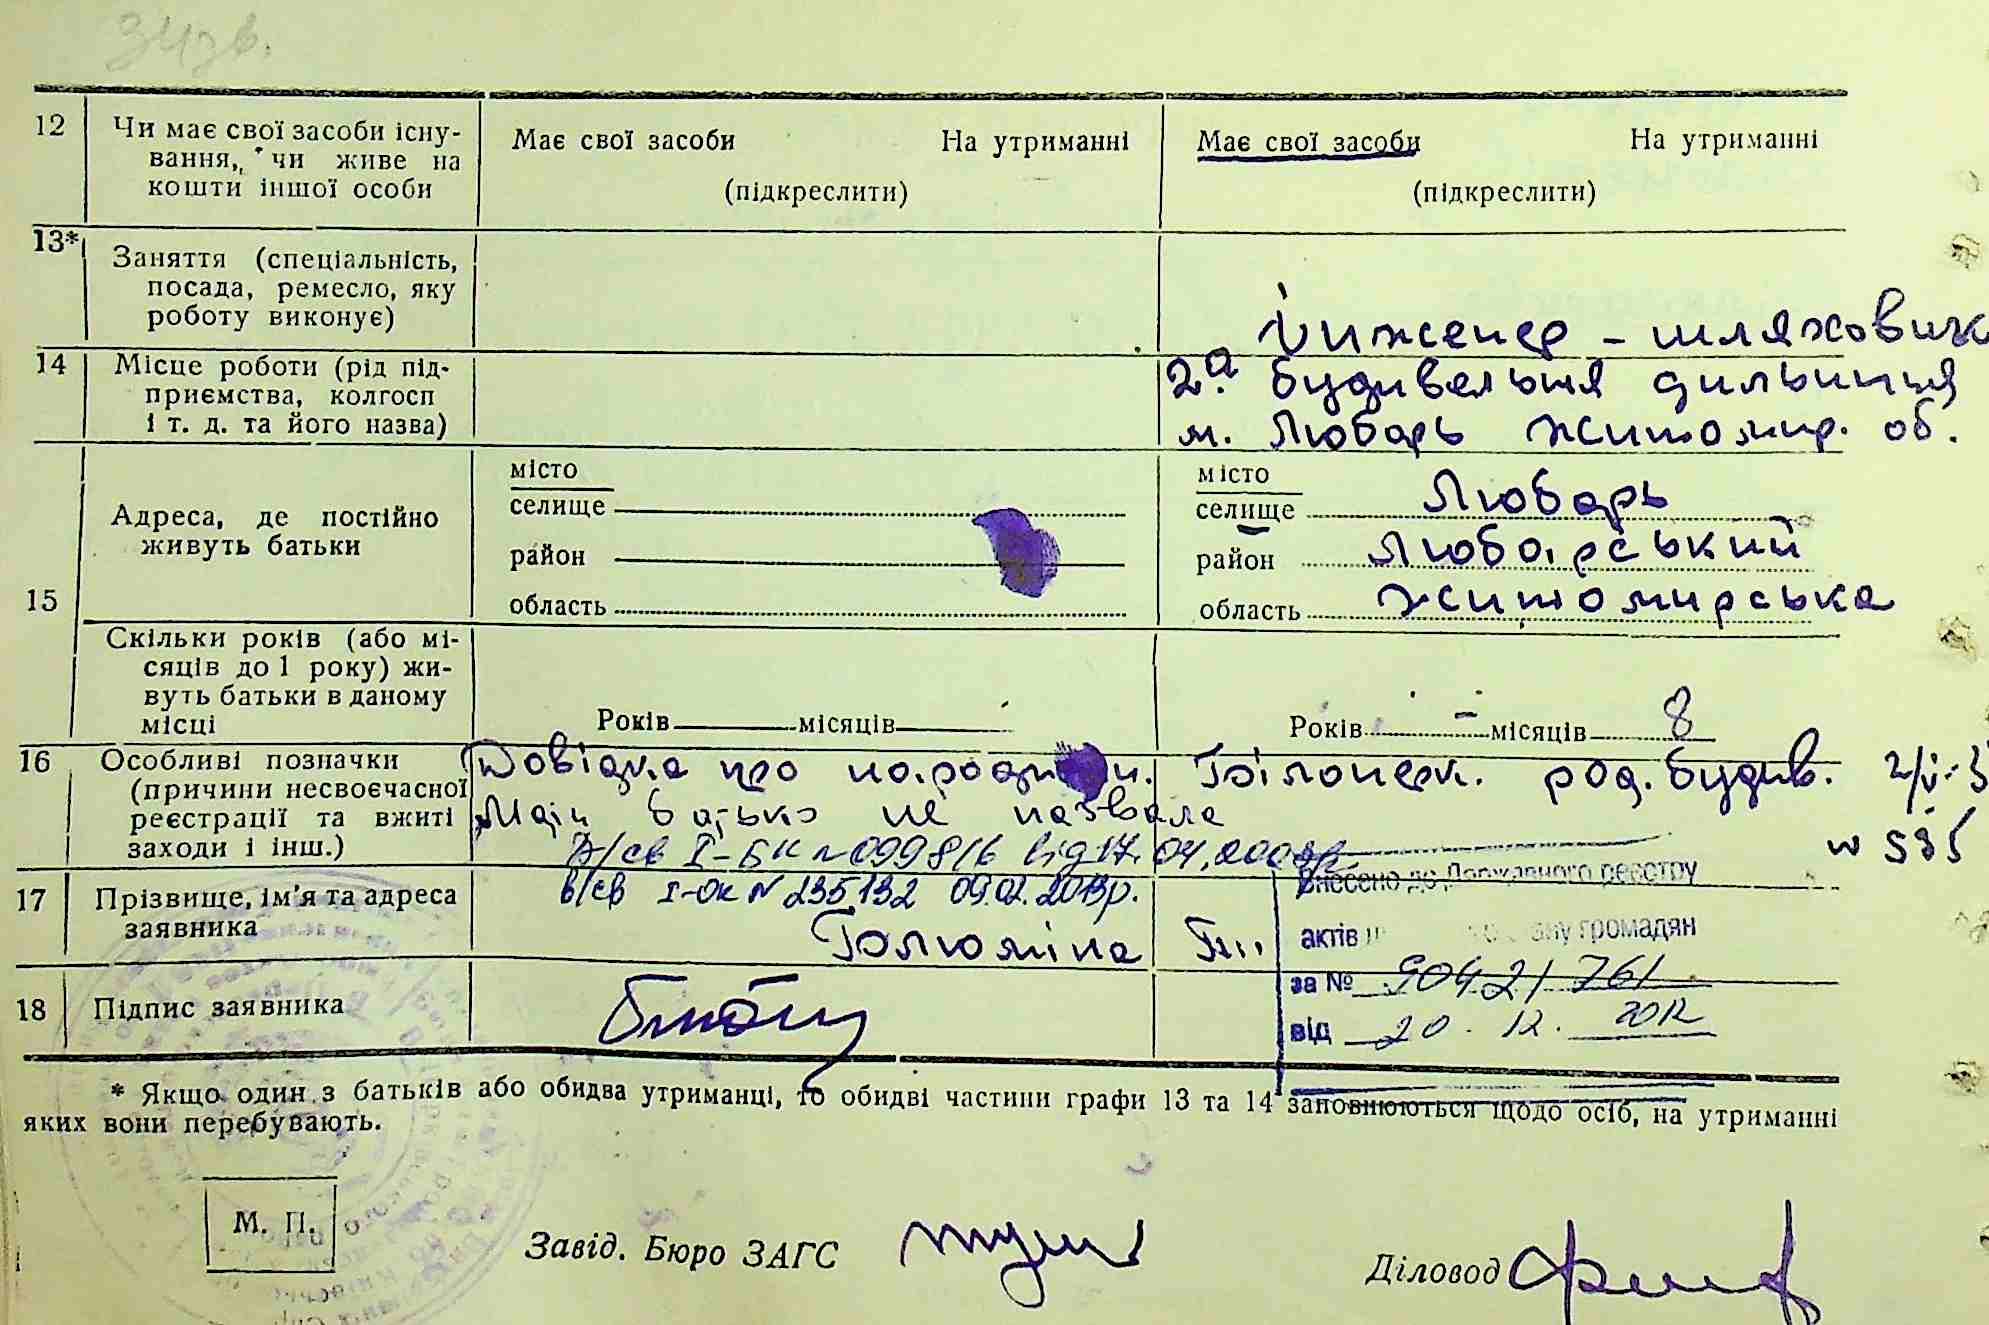 12 Чи має свої засоби існу-
вання, чи живе на
кошти іншої особи
Має свої засоби На утриманні
(підкреслити)
Має свої засоби На утриманні
(підкреслити)
13* Заняття (спеціальність,
посада, ремесло, яку
роботу виконує)
Інженер - шляховик
14 Місце роботи (рід під-
приємства, колгосп
і т. д. та його назва)
2а будивельня дильниця
м. Любарь житомир. об.
15 Адреса, де постійно
живуть батьки
місто
селище
район
область
місто
селище Любарь
район Любарський
область житомирська
Скільки років (або мі-
сяців до 1 року) жи-
вуть батьки в даному
місці
Років місяців
Років - місяців 8
16 Особливі позначки
(причини несвоєчасної
реєстрації та вжиті
заходи і інш.)
Довідка про народжен. род. будив.
Мати батько не назвала
№ 595
І-БК № 099816 від 17.04.
в/св І-ОК № 235132 09.02.2013р.
17 Прізвище, ім'я та адреса
заявника
18 Підпис заявника
Внесено до Державного реєстру
актів громадян
за № 90421761
від 20. 12. 2012
* Якщо один з батьків або обидва утриманці, то обидві частини графи 13 та 14 заповнюються щодо осіб, на утриманні
яких вони перебувають.
М. П.
Завід. Бюро ЗАГС
Діловод